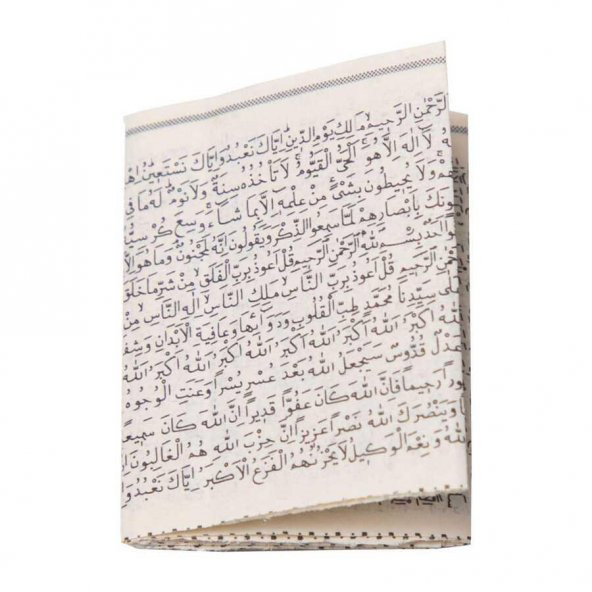 الرَّحْمٰنِ الرَّحِيمِ مٰلِكِ يَوْمِ الدِّينِ اِيَّاكَ نَعْبُدُ وَاِيَّاكَ نَسْتَعِينُ
لَا اِلٰهَ اِلَّا هُوَ الْحَىُّ الْقَيُّومُ لَا تَأْخُذُهُ سِنَةٌ وَلَا نَوْمٌ لَهُ مَا فِى
وَلَا يُحِيطُونَ بِشَىْءٍ مِنْ عِلْمِهِ اِلَّا بِمَا شَاءَ وَسِعَ
بِاَبْصَارِهِمْ لَمَّا سَمِعُوا الذِّكْرَ وَيَقُولُونَ اِنَّهُ لَمَجْنُونٌ وَمَا هُوَ
اللّٰهِ الرَّحْمٰنِ الرَّحِيمِ قُلْ اَعُوذُ بِرَبِّ الْفَلَقِ مِنْ شَرِّ مَا خَلَقَ
الرَّحْمٰنِ الرَّحِيمِ قُلْ اَعُوذُ بِرَبِّ النَّاسِ مَلِكِ النَّاسِ اِلٰهِ النَّاسِ مِنْ
سَيِّدِنَا مُحَمَّدٍ طِبِّ الْقُلُوبِ وَدَوَائِهَا وَعَافِيَةِ الْاَبْدَانِ
اَللّٰهُ اَكْبَرُ اَللّٰهُ اَكْبَرُ اَللّٰهُ اَكْبَرُ اَللّٰهُ اَكْبَرُ
قُدُّوسٌ سَيَجْعَلُ اللّٰهُ بَعْدَ عُسْرٍ يُسْرًا وَعَنَتِ الْوُجُوهُ
رَحِيمًا فَاِنَّ اللّٰهَ كَانَ عَفُوًّا قَدِيرًا اِنَّ اللّٰهَ كَانَ سَمِيعًا
وَيَنْصُرَكَ اللّٰهُ نَصْرًا عَزِيزًا اِنَّ حِزْبَ اللّٰهِ هُمُ الْغَالِبُونَ
وَنِعْمَ الْوَكِيلُ لَا يَحْزُنُهُمُ الْفَزَعُ الْاَكْبَرُ اِيَّاكَ نَعْبُدُ